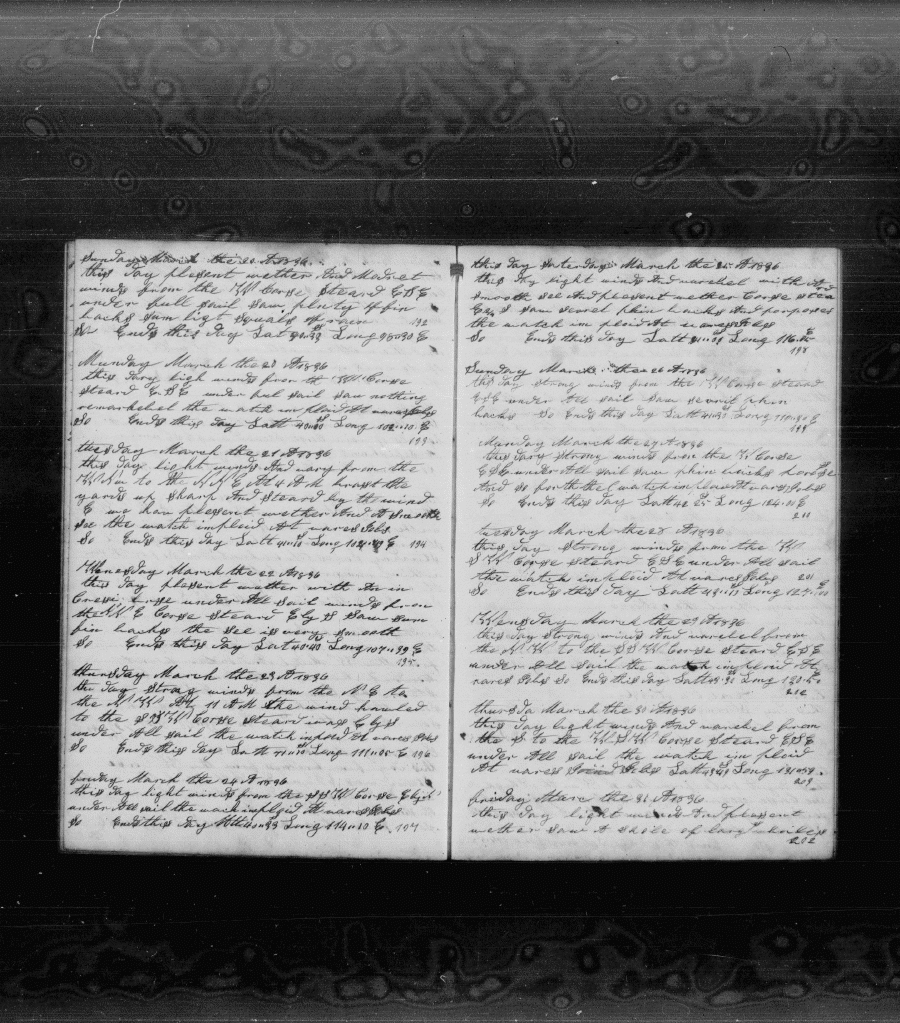 Sunday March the 20 A 1896
this day plesent wether And Modret
winds from the W Corse Steard ESE
under full sail saw plenty of fin
backs sum ligt squals of rain 192
So Ends this day Lat Long 98"30 E
Munday March the 20 A 1896
this day ligh winds from th W Corse
steard ESE under ful sail saw nothing
remarkebel the watch imploid At vares Jobs
So Ends this day Latt 40"20 Long 102"10 E
193
thesday March the 21 A 1896
this day light winds And vary from the
W N W to the N N E At 4 A M brast the
yards up sharp And steard by the wind
E we hav plesent wether And A smooth
see the watch imploid At vares Jobs
So Ends this day Latt 41"10 Long E 194
Wenesday March the 22 A 1896
this day plesent wether with An in
under All sail winds from
the N N E Corse Steard E by S Saw sum
fin backs the see is very smooth
So Ends this day Lat 40"40 Long 107"39 E
195
thursday March the 23 A 1896
this day strong winds from the N E to
the N W At 11 A M the wind hauled
to the S S W Corse steard was E by S
under All sail the watch imploid At vares Jobs
So Ends this day Latt 41"10 Long 111"05 E 196
friday March the 24 A 1896
this day light winds from the S S W Corse E by S
under All sail the wach imploid At vares Jobs
So Ends this day Latt 40"33 Long 114"10 E 197
this day Saterday March the 25 A 1896
this day light winds And varebel with
smooth see And plesent wether Corse stea
E by S saw severl phin backs And porposes
the watch im ploid At vares Jobs
So Ends this day Latt 41"01 Long 116" E
198
Sunday March the 26 A 1896
this day strong winds from the W Corse steard
ESE under All sail saw severl phin
backs So Ends this day Latt 41"30 Long E
199
Munday March the 27 A 1896
this day strong winds from the W Corse
ESE under All sail saw phin backs
And so forth the watch imploid At vares Jobs
So Ends this day Latt 42" Long 124"01 E
211
tuesday March the 28 A 1896
this day strong winds from the W
S W Corse steard ESE under All sail
the watch imploid At vares Jobs 201
So Ends this day Latt 43"11 Long
Wensday March the 29 A 1896
this day strong winds And varebel from
the N W to the S S W Corse Steard ESE
under All sail the watch imploid At
vares Jobs So Ends this day Latt Long
212
thursda March the 31 A 1896
this day light winds And varebel from
the S to the W S W Corse Steard ESE
under All sail the watch im ploid
At vares Jobs Latt Long
203
friday Marc the 31 A 1896
this day light winds And plesent
wether saw A shole of larg whailes
202